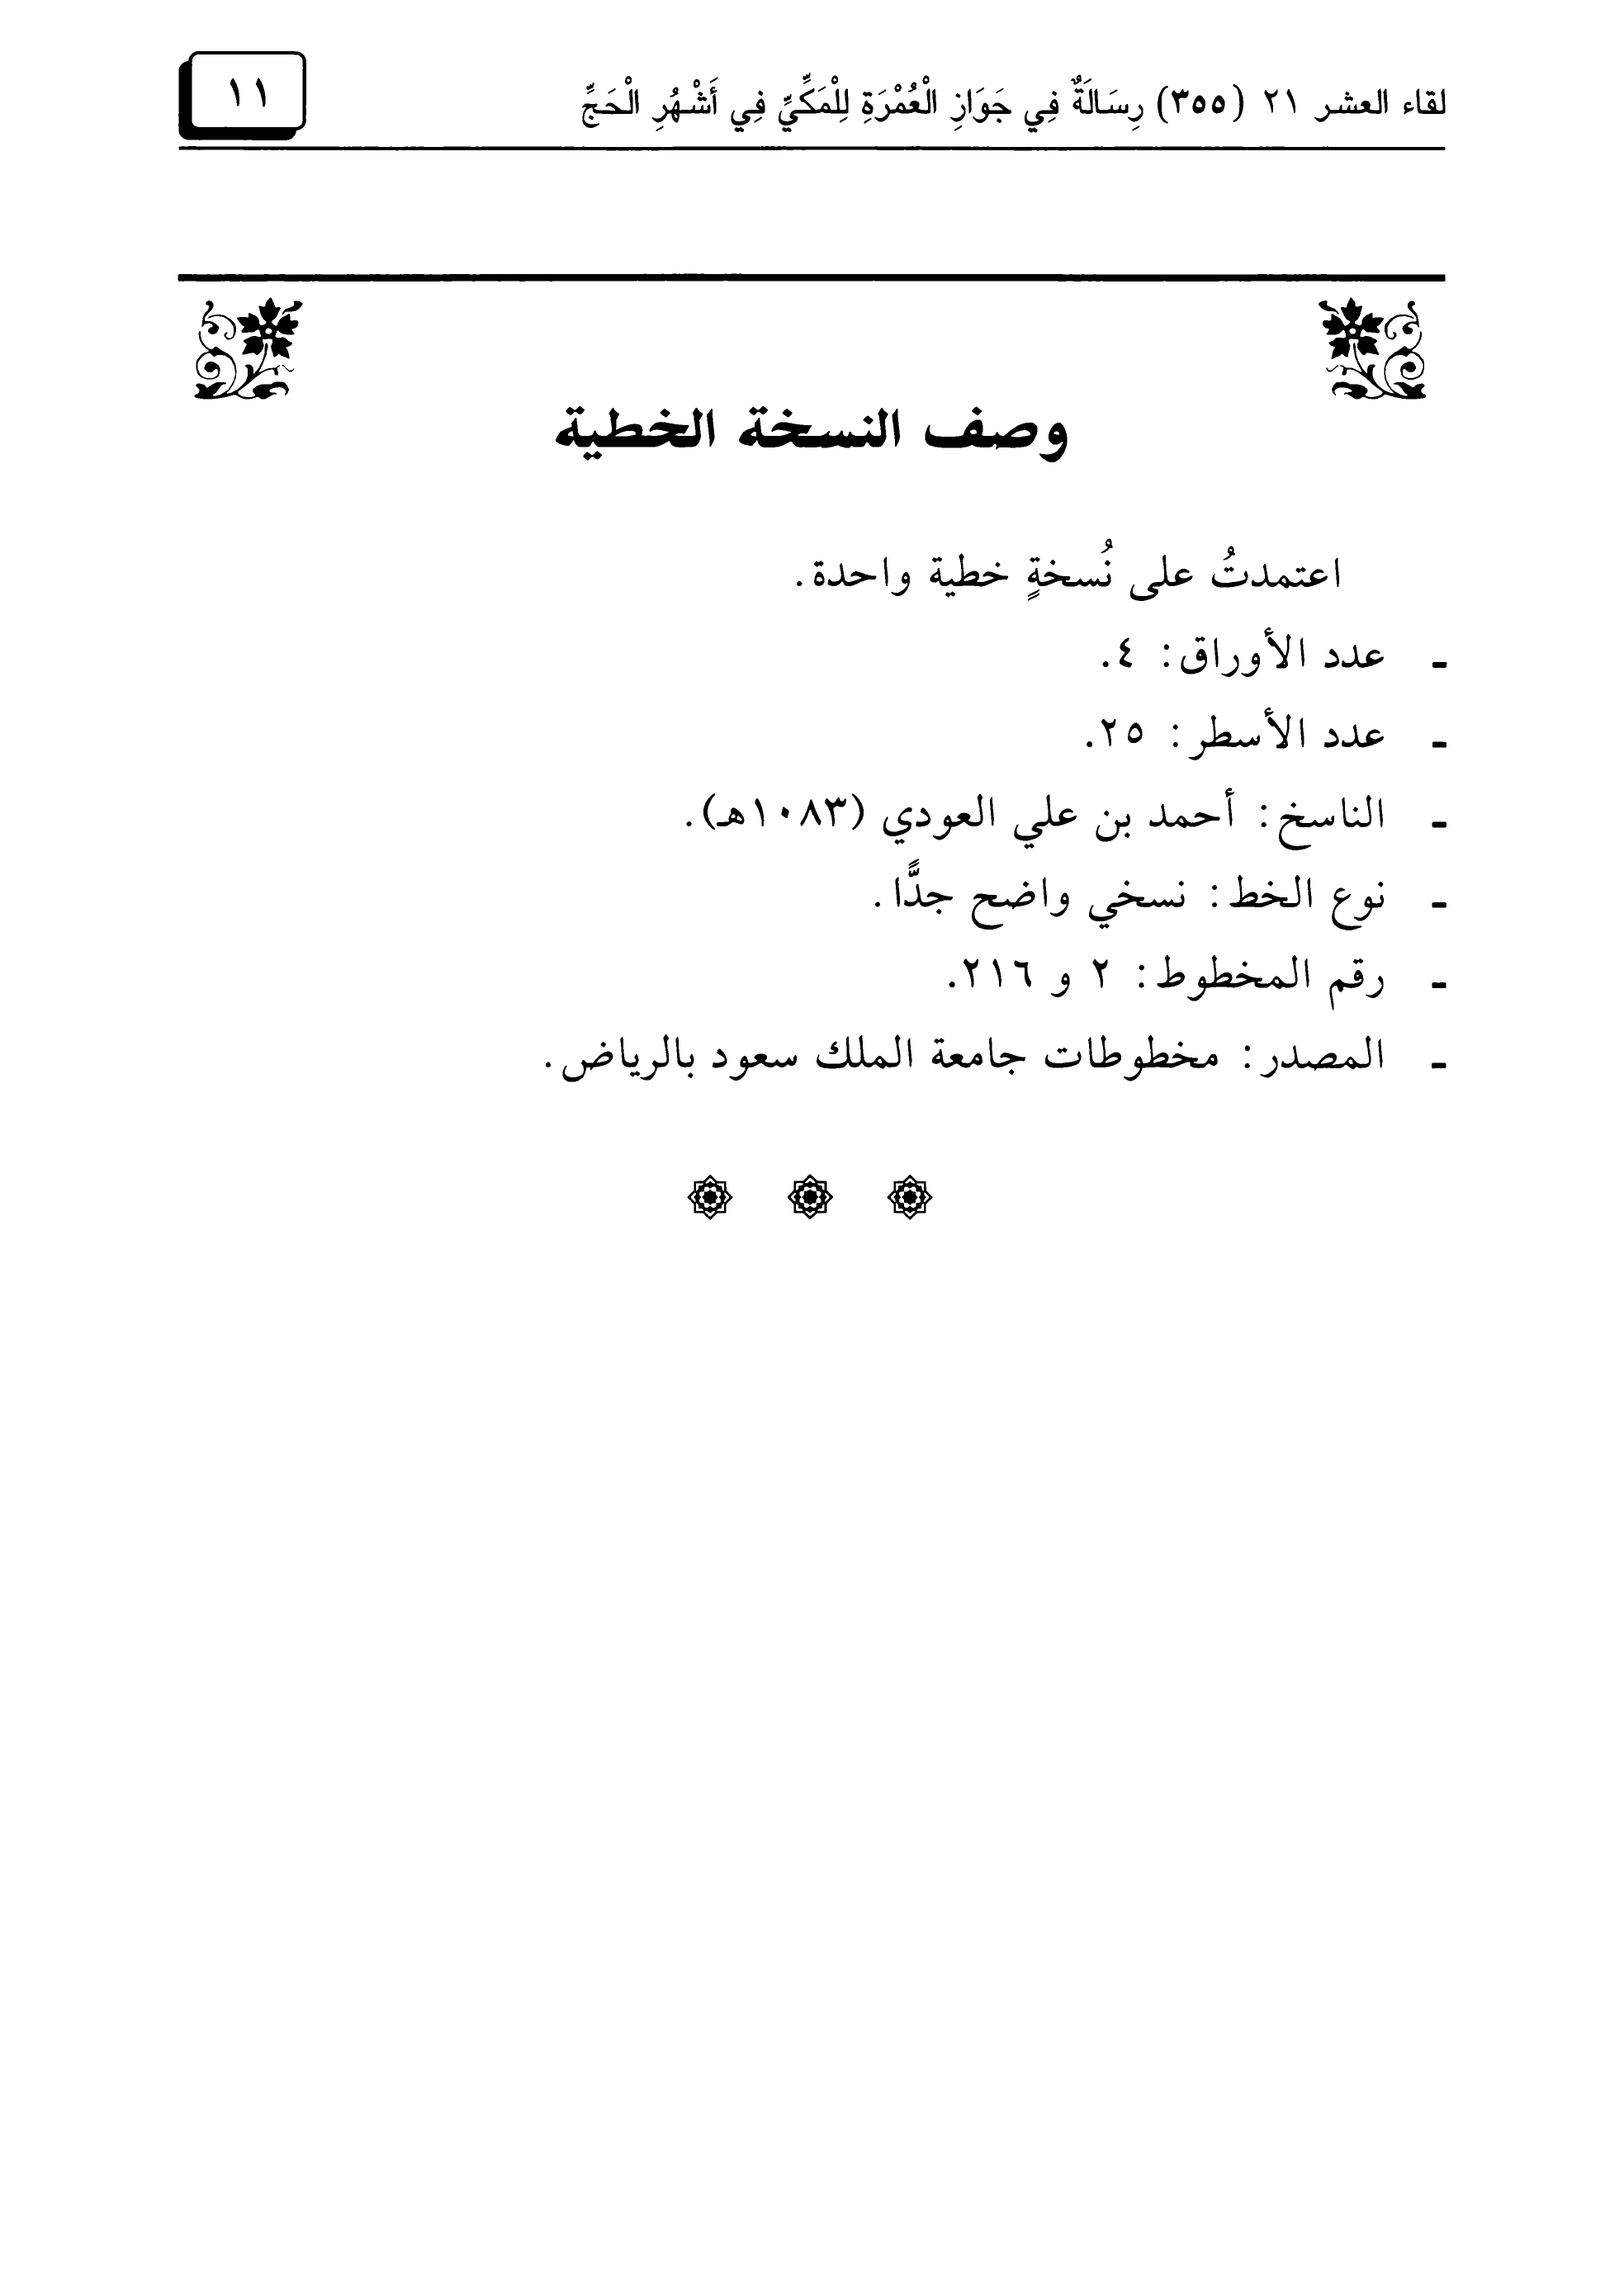 لقاء العشر ٢١ (٣٥٥) رِسَالَةٌ فِي جَوَازِ الْعُمْرَةِ لِلْمَكِّيِّ فِي أَشْهُرِ الْحَجِّ
١١
وصف النسخة الخطية
اعتمدتُ على نُسخةٍ خطية واحدة.
ـ عدد الأوراق: ٤.
ـ عدد الأسطر: ٢٥.
ـ الناسخ: أحمد بن علي العودي (١٠٨٣هـ).
ـ نوع الخط: نسخي واضح جدًّا.
ـ رقم المخطوط: ٢ و ٢١٦.
ـ المصدر: مخطوطات جامعة الملك سعود بالرياض.